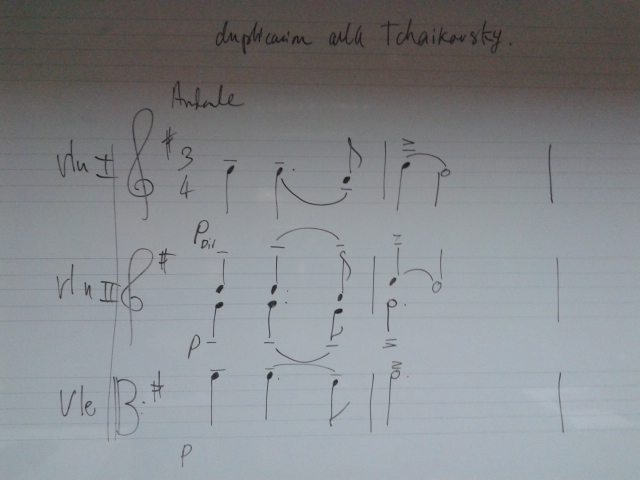 duplication alla Tchaikovsky.
Andante
Vln I 3 4
P Div
Vln II
P
Vle
P